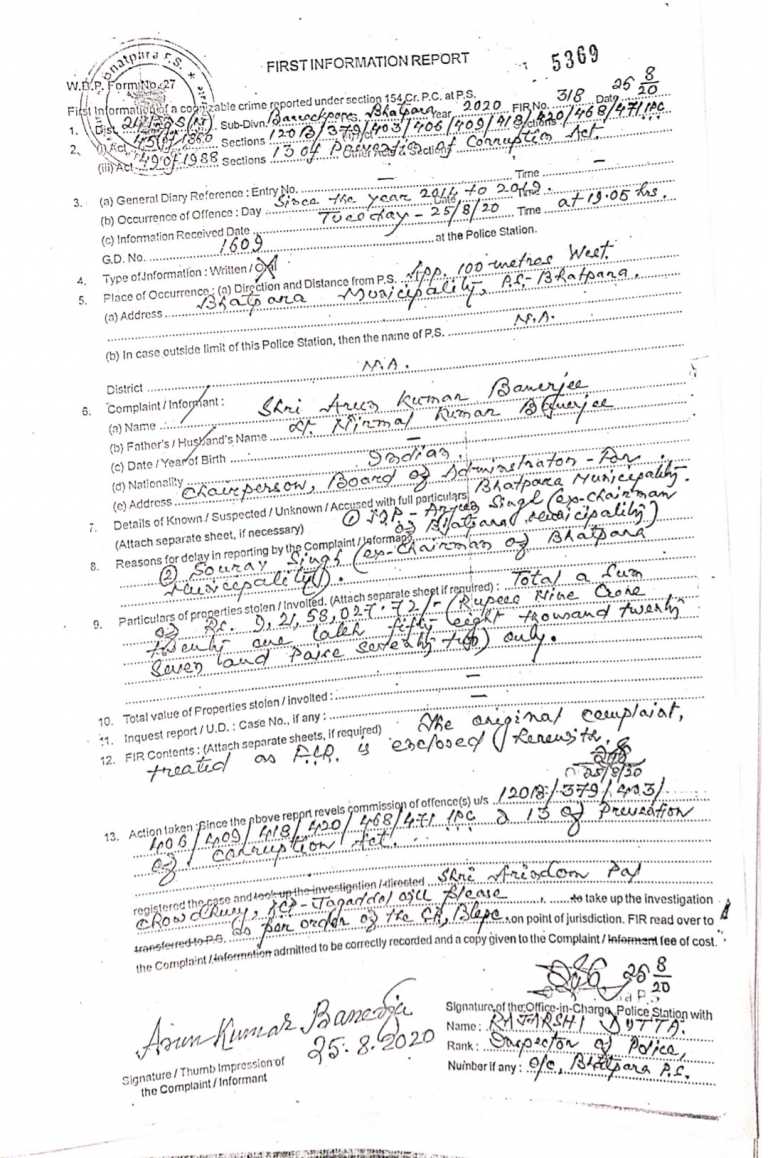 FIRST INFORMATION REPORT
5369
Bhatpara P.S.
W.B.P. Form No. 27
First Information of a cognizable crime reported under section 154 Cr. P.C. at P.S.
1. Dist. Sub-Divn. Barrackpore, Bhatpara Year 2020 FIR No. 318 Date 25 8/20
2. (i) Act 45 of 1860 Sections 120B/379/403/406/409/418/420/468/471 IPC
(iii) Act 49 of 1988 Sections 13 of Prevention of Corruption Act.
3. (a) General Diary Reference : Entry No. — Time —
(b) Occurrence of Offence : Day Since the year 2014 to 2019. Date Time
(c) Information Received Date Tuesday - 25/8/20 Time at 19.05 hrs.
G.D. No. 1609 at the Police Station.
4. Type of Information : Written / Oral
5. Place of Occurrence : (a) Direction and Distance from P.S. App. 100 metres West.
(a) Address Bhatpara Municipality, P.S- Bhatpara.
(b) In case outside limit of this Police Station, then the name of P.S. N.A.
District N.A.
6. Complaint / Informant :
(a) Name Shri Arun Kumar Banerjee
(b) Father's / Husband's Name Lt. Nirmal Kumar Banerjee
(c) Date / Year of Birth —
(d) Nationality Indian.
(e) Address Chairperson, Board of Administrator - For Bhatpara Municipality.
7. Details of Known / Suspected / Unknown / Accused with full particulars
(Attach separate sheet, if necessary) ① Arjun Singh (ex-chairman of Bhatpara Municipality)
8. Reasons for delay in reporting by the Complaint / Informant
② Sourav Singh (ex-Chairman of Bhatpara
Municipality).
9. Particulars of properties stolen / Involted. (Attach separate sheet if required) : Total a Sum
of Rs. 9,21,58,027.72/- (Rupees Nine Crore
twenty one lakh fifty eight thousand twenty
Seven and Paise seventy two) only.
10. Total value of Properties stolen / involted : —
11. Inquest report / U.D. : Case No., if any : —
12. FIR Contents : (Attach separate sheets, if required) The original complaint,
treated as F.I.R. is enclosed herewith.
25/8/20
13. Action taken : Since the above report revels commission of offence(s) u/s 120B/379/403/
406/409/418/420/468/471 IPC & 13 of Prevention
of Corruption Act.
registered the case and took up the investigation / directed Shri Arindom Pal
Chowdhury, ACP - Jagaddal will please to take up the investigation
transferred to P.S. as per order of the CP, Bkpc on point of jurisdiction. FIR read over to
the Complaint / Information admitted to be correctly recorded and a copy given to the Complaint / Informant fee of cost.
25 8/20
Arun Kumar Banerjee
25.8.2020
Signature / Thumb Impression of
the Complaint / Informant
Signature of the Office-in-Charge, Police Station with
Name : RAJARSHI DUTTA.
Rank : Inspector of Police,
Number if any : O/c, Bhatpara P.S.